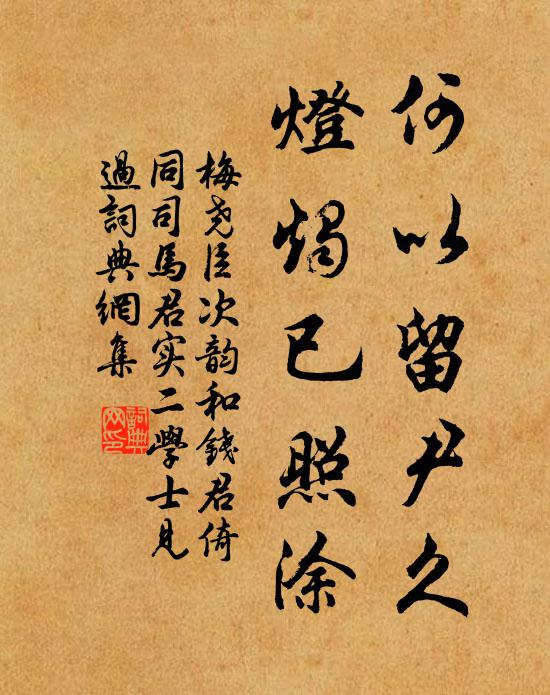 何以留尹久
燈燭已照涂
梅尧臣次韵和錢君倚
同司馬君实二學士見
過詞典網集
詞典网印